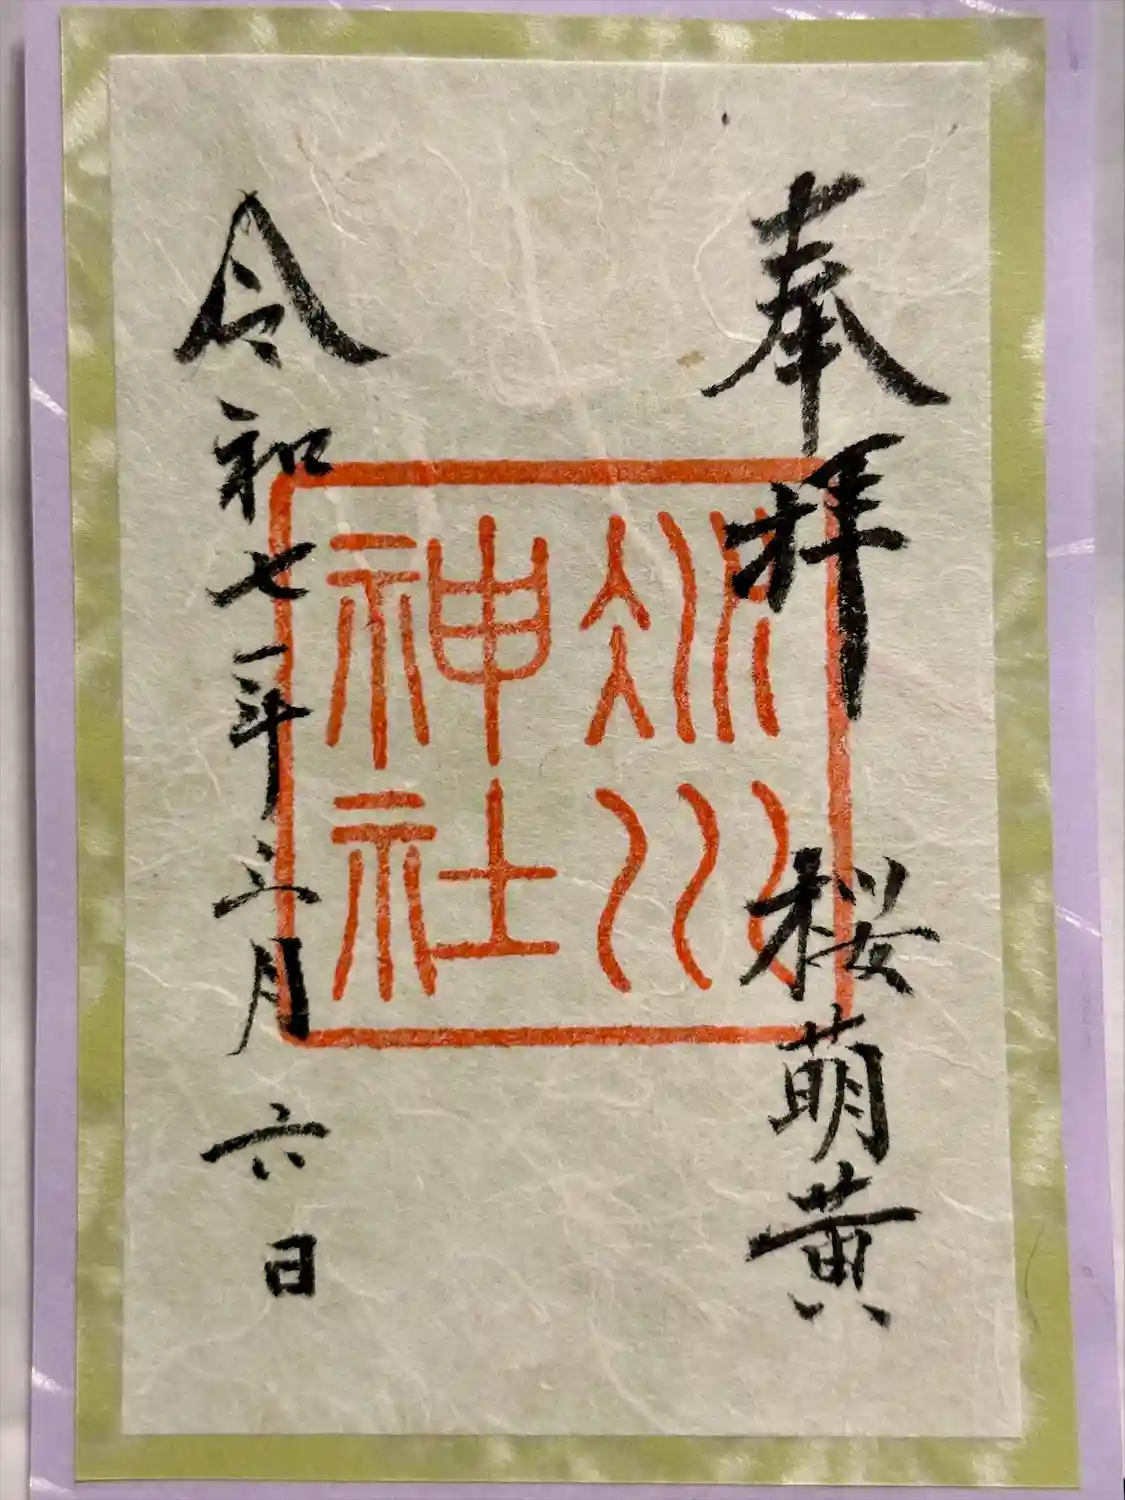 奉拝　桜萌黄
冰川
神社
令和七年三月六日